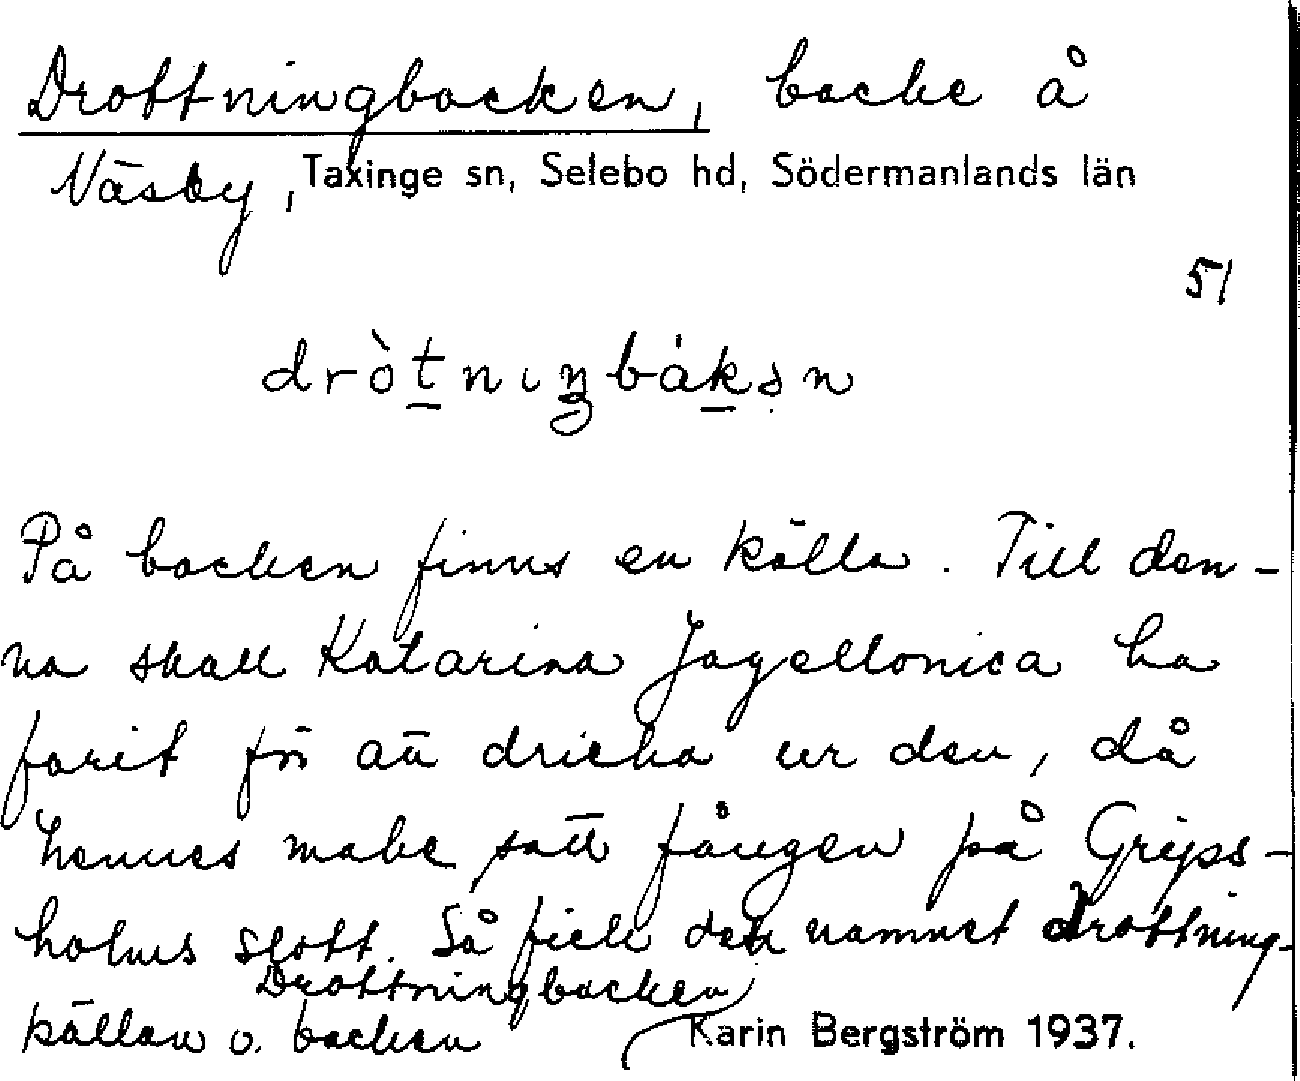 Drottningbacken, backe å
Väsby, Taxinge sn, Selebo hd, Södermanlands län
51
dròtnıŋbákən
På backen finns en källa. Till den-
na skall Katarina Jagellonica ha
farit för att dricka ur den, då
hennes make satt fången på Grips-
holms slott. Så fick den namnet drottning-
källan o. backen Drottningbacken
Karin Bergström 1937.